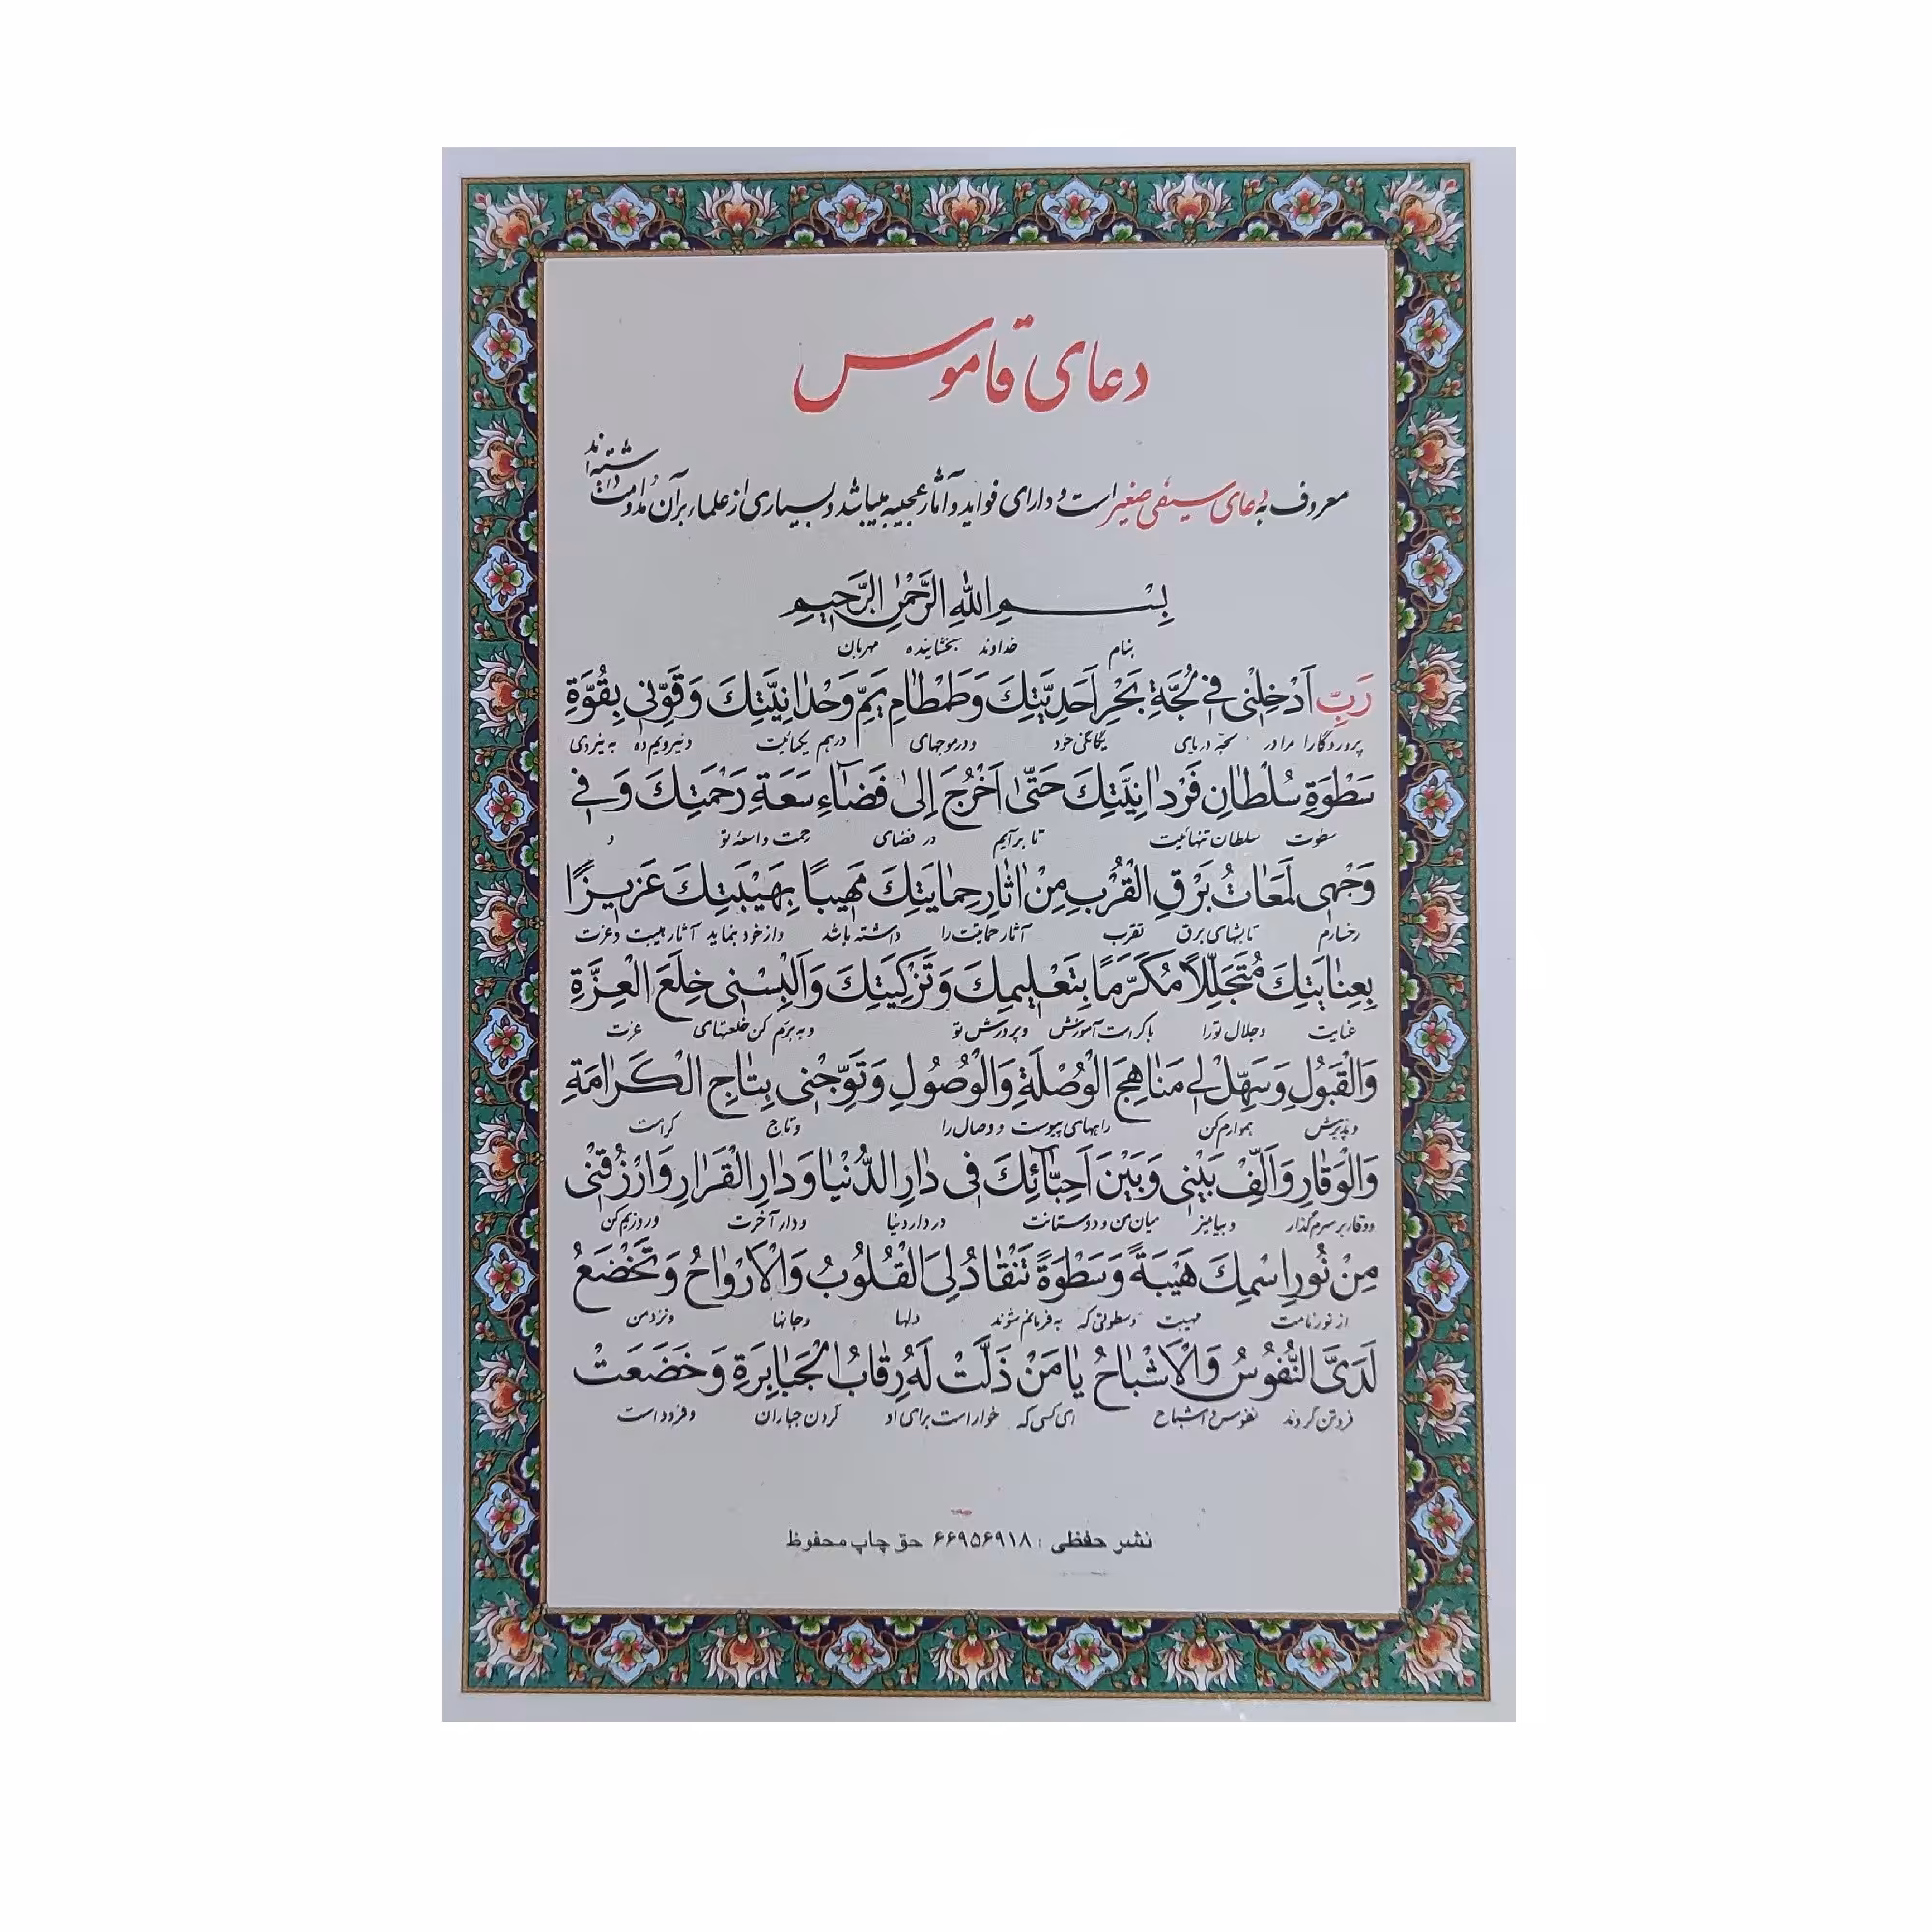 دعای قاموس
معروف به دعای سیفی صغیر است و دارای فواید و آثار عجیبه میباشد و بسیاری از علماء بر آن مداومت داشته‌اند
بِسْمِ اللّٰهِ الرَّحْمٰنِ الرَّحیمِ
بنام خداوند بخشاینده مهربان
رَبِّ اَدْخِلْنی فی لُجَّةِ بَحْرِ اَحَدِیَّتِكَ وَ طَمْطٰامِ یَمِّ وَحْدٰانِیَّتِكَ وَ قَوِّنی بِقُوَّةِ
پروردگارا مرا در لجّه دریای یگانگی خود و در موجهای درهم یکتائیت و نیرویم ده به نیروی
سَطْوَةِ سُلْطٰانِ فَرْدٰانِیَّتِكَ حَتّٰی اَخْرُجَ إِلیٰ فَضٰآءِ سَعَةِ رَحْمَتِكَ وَ فی
سطوت سلطان تنهائیت تا برآیم در فضای رحمت واسعهٔ تو و
وَجْهی لَمَعٰاتُ بَرْقِ الْقُرْبِ مِنْ اٰثٰارِ حِمٰایَتِكَ مَهیبًا بِهَیْبَتِكَ عَزیزًا
رخسارم تابشهای برق تقرب آثار حمایتت را داشته باشد و از خود بنماید آثار هیبت و عزت
بِعِنٰایَتِكَ مُتَجَلِّلاً مُكَرَّمًا بِتَعْلیمِكَ وَ تَزْكِیَتِكَ وَ اَلْبِسْنی خِلَعَ الْعِزَّةِ
عنایت و جلال تو را با کرامت آموزش و پرورش تو و به برم کن خلعتهای عزت
وَ الْقَبُولِ وَ سَهِّلْ لی مَنٰاهِجَ الْوُصْلَةِ وَ الْوُصُولِ وَ تَوِّجْنی بِتٰاجِ الْكَرٰامَةِ
و پذیرش هموارم کن راههای پیوست و وصال را و تاج کرامت
وَ الْوَقٰارِ وَ اَلِّفْ بَیْنی وَ بَیْنَ اَحِبّٰآئِكَ فی دٰارِ الدُّنْیٰا وَ دٰارِ الْقَرٰارِ وَ ارْزُقْنی
و وقار بر سرم گذار و بیامیز میان من و دوستانت در دار دنیا و دار آخرت و روزیم کن
مِنْ نُورِ اسْمِكَ هَیْبَةً وَ سَطْوَةً تَنْقٰادُ لِیَ الْقُلُوبُ وَ الْاَرْوٰاحُ وَ تَخْضَعُ
از نور نامت مهیبت و سطوتی که به فرمانم شوند دلها و جانها و نزد من
لَدَیَّ النُّفُوسُ وَ الْاَشْبٰاحُ یٰا مَنْ ذَلَّتْ لَهُ رِقٰابُ الْجَبٰابِرَةِ وَ خَضَعَتْ
فروتن گردند نفوس و اشباح ای کسی که خوار است برای او گردن جباران و فرود است
نشر حفظی : ۶۶۹۵۶۹۱۸ حق چاپ محفوظ